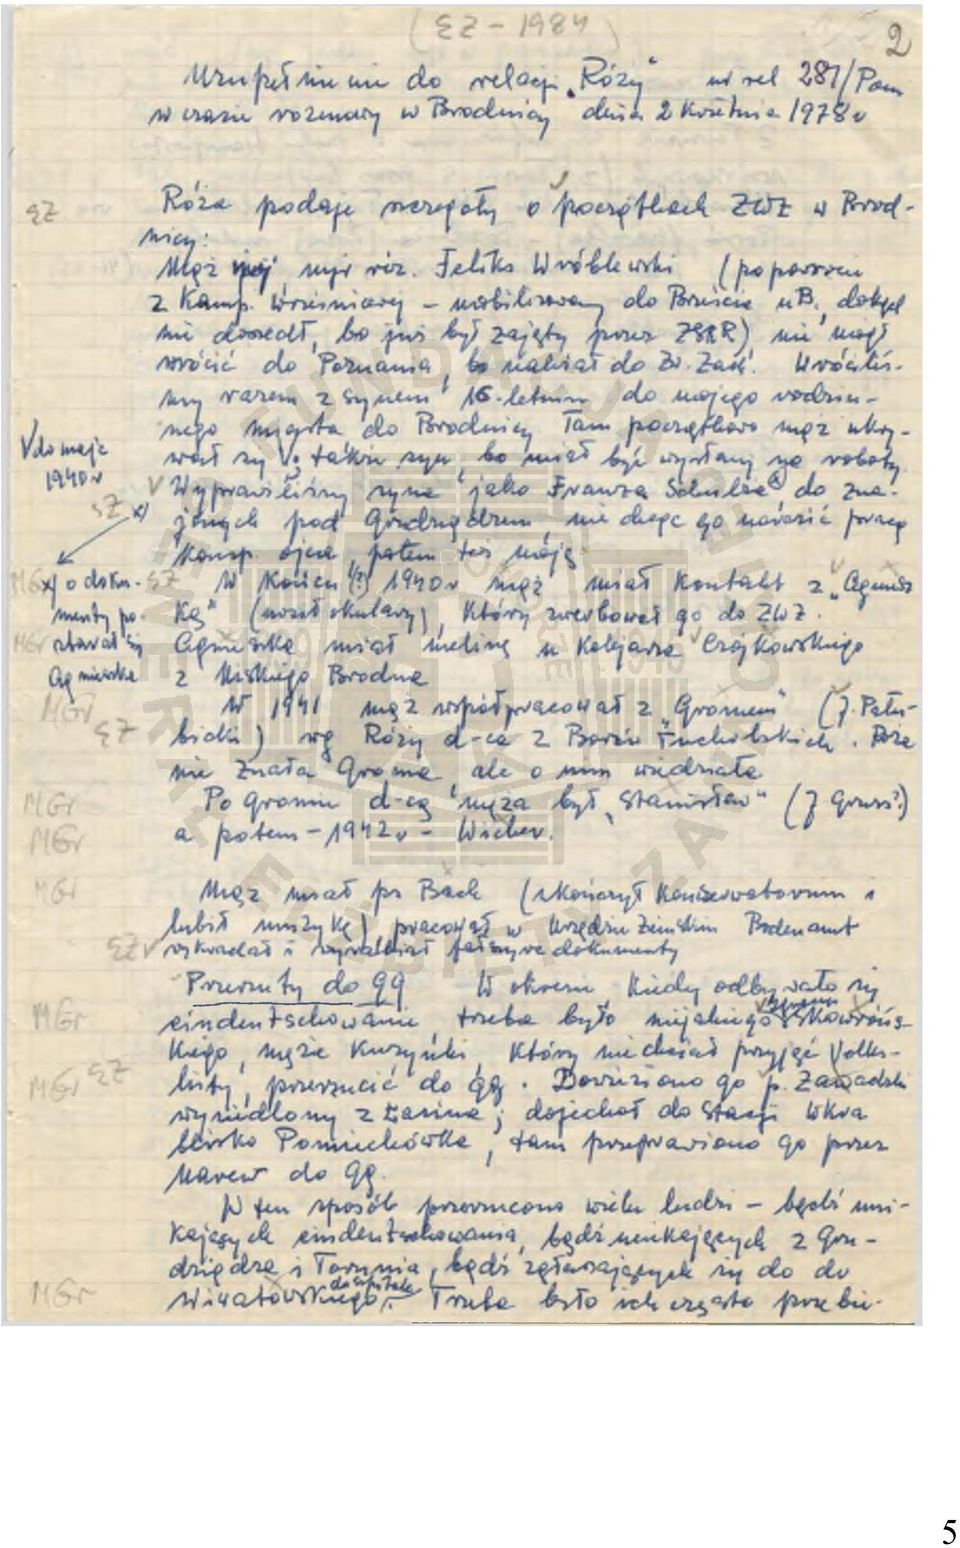 (EZ - 1984)
2
Uzupełnienie do relacji „Róży" nr rel 281/Pom
w czasie rozmowy w Brodnicy dnia 2 kwietnia 1978 r
EZ
Róża podaje szczegóły o początkach ZWZ w Brod-
nicy:
Mąż mój mjr rez. Feliks Wróblewski (po powrocie
z Kamp. Wrześniowej – mobilizowany do Brześcia n B., dokąd
nie doszedł, bo już był zajęty przez ZSRR) nie mógł
wrócić do Poznania, bo należał do Zw. Zach. Wróciliś-
my razem z synem 16-letnim do mojego rodzin-
nego miasta do Brodnicy. Tam początkowo mąż ukry-
wał się, także syn, bo miał być wysłany na roboty
V do maja
1940 r
Wyprawiliśmy syna jako Franza Schulza x) do zna-
jomych pod Grudziądzem nie chcąc go narazić pracą
konsp. ojca, potem też moją
W końcu (?) 1940 r mąż miał kontakt z „Agniesz
ką" (nosił okulary), który zwerbował go do ZWZ.
Agnieszka miał melinę u kolejarza Czajkowskiego
z Niskiego Brodna
x) o doku-
menty po-
starał się
Agnieszka
EZ
MGr
W 1941 mąż współpracował z „Gromem" (J. Pału-
bicki) wg Róży d-ca z Borów Tucholskich. Róża
nie znała Groma ale o nim wiedziała
Po Gromie d-cą męża był „Stanisław" (J Gruss?)
a potem – 1942 r – Wicher.
MGr
EZ
MGr
MGr
Mąż miał ps Bach (skończył konserwatorium i
lubił muzykę), pracował w Urzędzie Ziemskim Bodenamt
wykradał i wyrabiał fałszywe dokumenty
MGr
EZ
Przerzuty do GG W okresie kiedy odbywało się
eindeutschowanie, trzeba było niejakiego Skowrońs-
kiego, męża kuzynki, który nie chciał przyjąć Volks-
listy, przerzucić do GG. Dowieziono go p. Zawadzki
wysiedlony z Łasina; dojechał do stacji Wkra
blisko Pomiechówka, tam przeprawiono go przez
Narew do GG.
MGr
MGr EZ
W ten sposób przerzucono wielu ludzi – bądź uni-
kających eindeutschowania, bądź uciekających z Gru-
dziądza i Torunia, bądź zgłaszających się do dr
Wiwatowskiego do szpitala. Trzeba było ich często przebie-
MGr
FUNDACJA
1939
1945
5